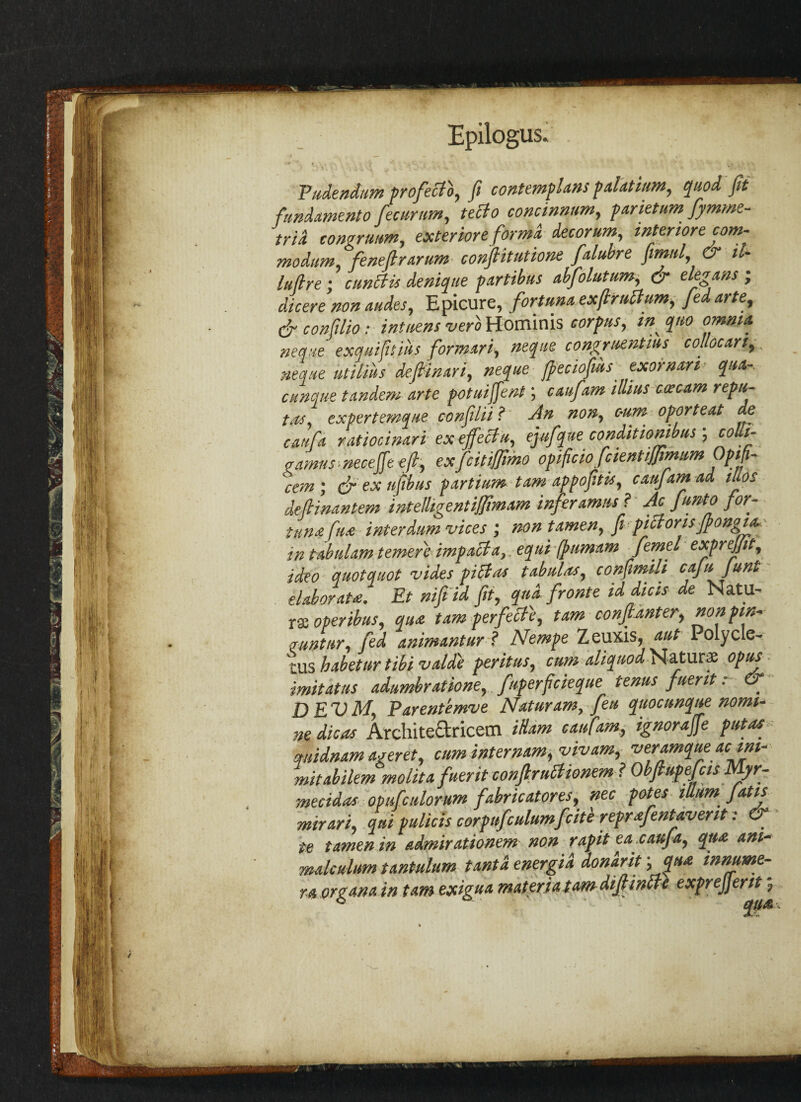 Epilogus.
Pudendum profectò, ſi contemplans palatium, quod ſit
fundamento ſecurum, tecto concinnum, parietum ſymme-
triâ congruum, exteriore formâ decorum, interiore com-
modum, feneſtrarum conſtitutione ſalubre ſimul, & il-
luſtre; cunctis denique partibus abſolutum, & elegans;
dicere non audes, Epicure, fortuna exſtructum, ſed arte,
& conſilio: intuens verò Hominis corpus, in quo omnia
neque exquiſitiùs formari, neque congruentiùs collocari,
neque utiliùs deſtinari, neque ſpecioſiùs exornari qua-
cunque tandem arte potuiſſent; cauſam illius cœcam repu-
tas, expertemque conſilii? An non, cum oporteat de
cauſa ratiocinari ex effectu, ejuſque conditionibus; colli-
gamus neceſſe eſt, ex ſcitiſſimo opificio ſcientiſſimum Opifi-
cem; & ex uſibus partium tam appoſitis, cauſam ad illos
deſtinantem intelligentiſſimam inferamus? Ac ſunto for-
tunæ ſuæ interdum vices; non tamen, ſi pictoris ſpongia
in tabulam temerè impacta, equi ſpumam ſemel expreſſit,
ideo quotquot vides pictas tabulas, conſimili caſu ſunt
elaboratæ. Et niſi id ſit, quâ fronte id dicis de Natu-
ræ operibus, quæ tam perfectè, tam conſtanter, non pin-
guntur, ſed animantur? Nempe Zeuxis, aut Polycle-
tus habetur tibi valdè peritus, cum aliquod Naturæ opus
imitatus adumbratione, ſuperficieque tenus fuerit: &
DEVM, Parentémve Naturam, ſeu quocunque nomi-
ne dicas Architectricem illam cauſam, ignoraſſe putas
quidnam ageret, cum internam, vivam, veramque ac ini-
mitabilem molita fuerit conſtructionem? Obſtupeſcis Myr-
mecidas opuſculorum fabricatores, nec potes illum ſatis
mirari, qui pulicis corpuſculum ſcitè repræſentaverit: &
te tamen in admirationem non rapit ea cauſa, quæ ani-
malculum tantulum tantâ energiâ donârit; quæ innume-
ra organa in tam exigua materia tam diſtinctè expreſſerit;
quæ